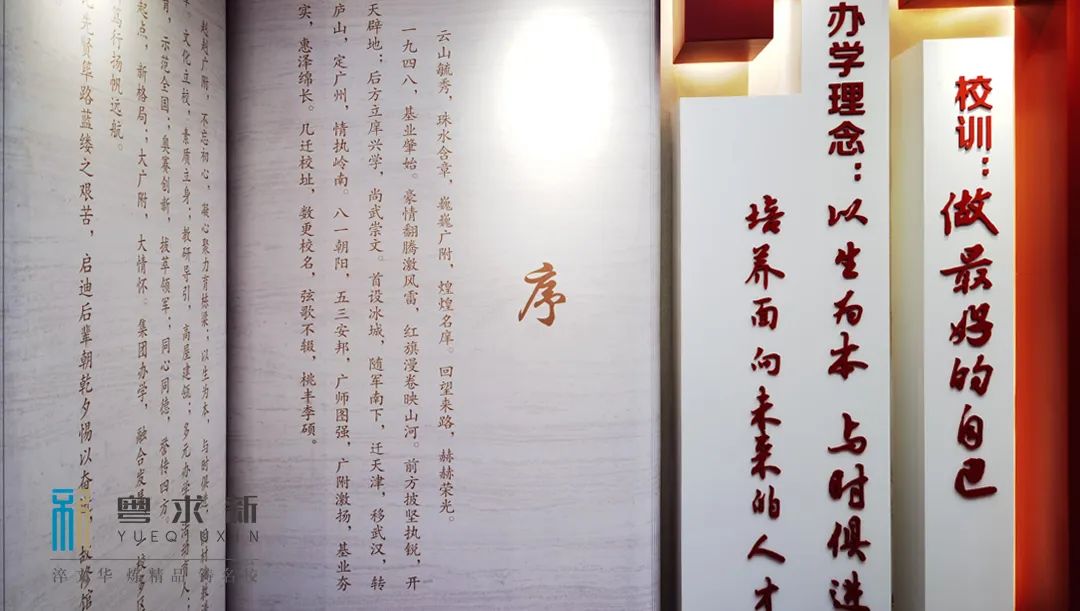 校训：做最好的自己
办学理念：以生为本 与时俱进
培养面向未来的人才
序
云山毓秀，珠水含章，巍巍广附，煌煌名庠。回望来路，赫赫荣光。
一九四八，基业肇始。豪情翻腾激风雷，红旗漫卷映山河。前方披坚执锐，开
天辟地；后方立庠兴学，尚武崇文。首设冰城，随军南下，迁天津，移武汉，转
庐山，定广州，情执岭南。八一朝阳，五三安邦，广师图强，广附激扬，基业夯
实，惠泽绵长。几迁校址，数更校名，弦歌不辍，桃丰李硕。
广附，不忘初心，凝心聚力育栋梁，以生为本，与时俱进，
文化立校，素质立身；教研导引，高屋建瓴；多元办学，育人；
育，示范全国；奥赛创新，拔萃领军；同心同德，誉传四方。
起点，新格局；大广附，大情怀。集团办学，融合发展，
笃行扬帆远航。
先贤筚路蓝缕之艰苦，启迪后辈朝乾夕惕以奋
粤求新
YUEQIUXIN
淬文华 炼精品 铸名校